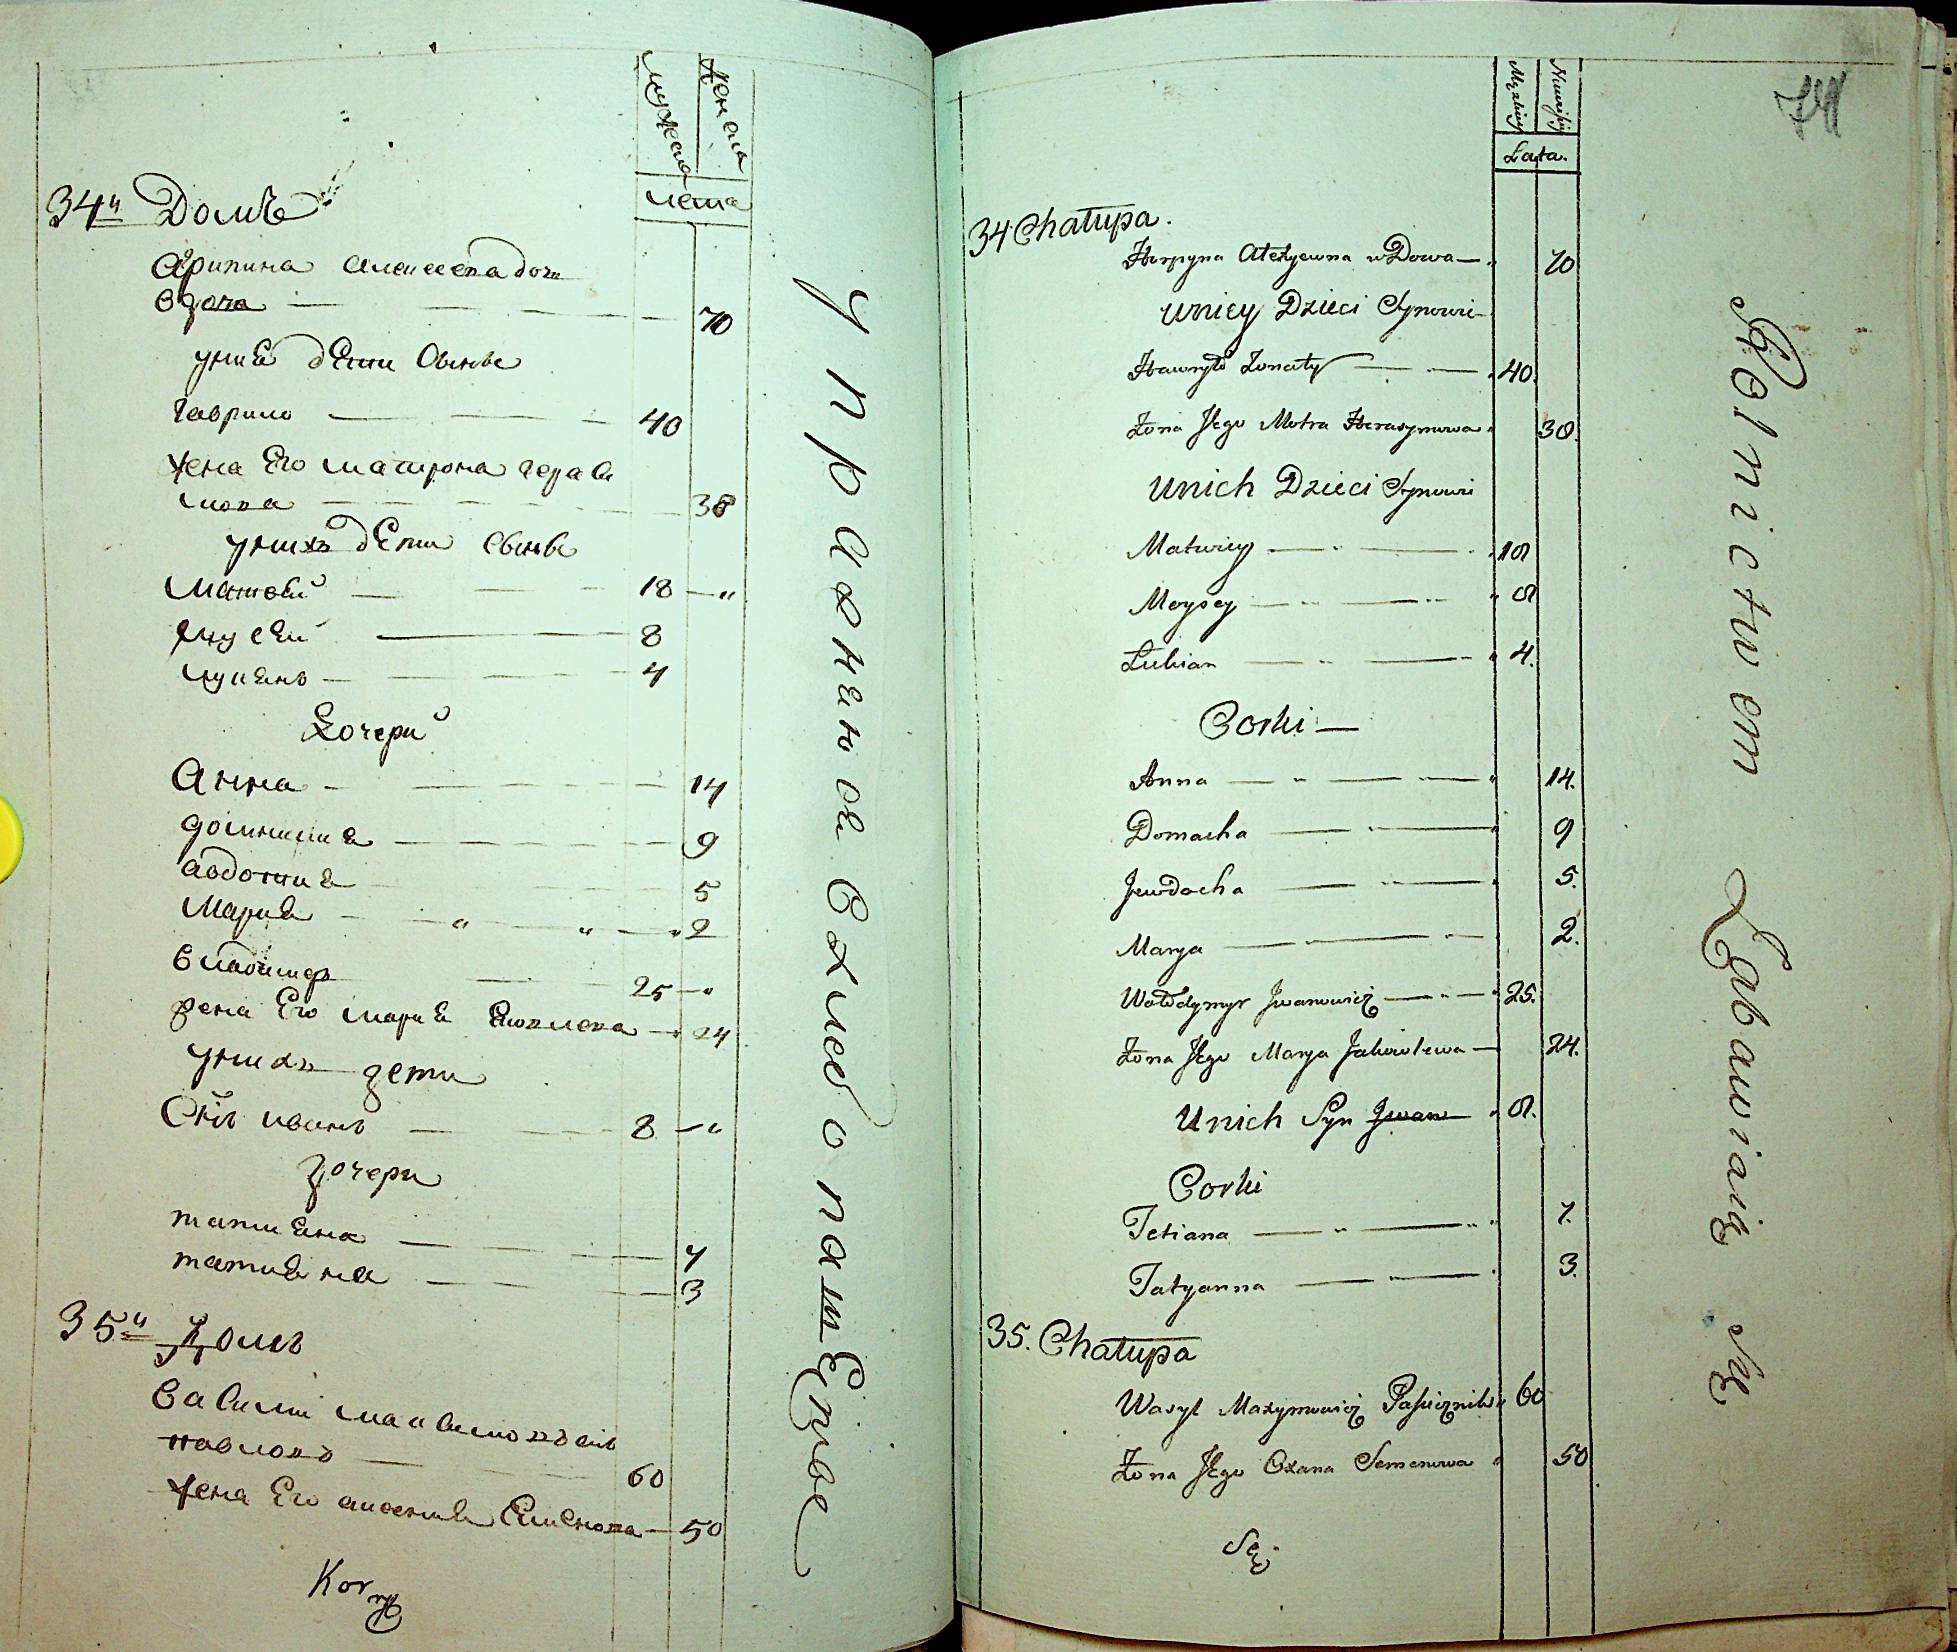 мужеска женска
лета
34й Домъ
Агрипина Алексеева дочь
вдова 70
у ние дети сынве
Гаврило 40
жена Его матрона гераси
мова 38
у нихъ дети сынве
Матвей 18 — "
Мусей 8
лукянъ 4
Дочери
Анна 14
домникия 9
авдотия 5
Мария " " " 2
владимиръ 25 — "
жена Его мария Яковлева 24
у нихъ дети
Снъ иванъ 8 — "
дочери
татияна 7
татияна 3
35й Домъ
Василий максимовъ снъ
павловъ 60
жена Его аксения Семенова 50
упражненои в хлебопашецве
Męzkiey Niewieściey
Lata.
74
34 Chałupa.
Harpyna Alexyewna wDowa 70
Unicy Dzieci Synowie
Hawryło Żonaty 40.
Żona Jego Motra Herasymowa 38.
Unich Dzieci Synowie
Matwiey 18
Moysey 8
Łukian 4.
Corki —
Anna 14.
Domacha 9
Jewdocha 5.
Marya 2.
Wołodymyr Jwanowicz 25.
Żona Jego Marya Jakowlewa 24.
Unich Syn Jwan 8.
Corki
Tetiana 7.
Tatyanna 3.
35. Chałupa
Wasyl Maxymowicz Pasicznik 60
Żona Jego Oxana Semenowa 50
Rolnictwem Zabawiaią Się